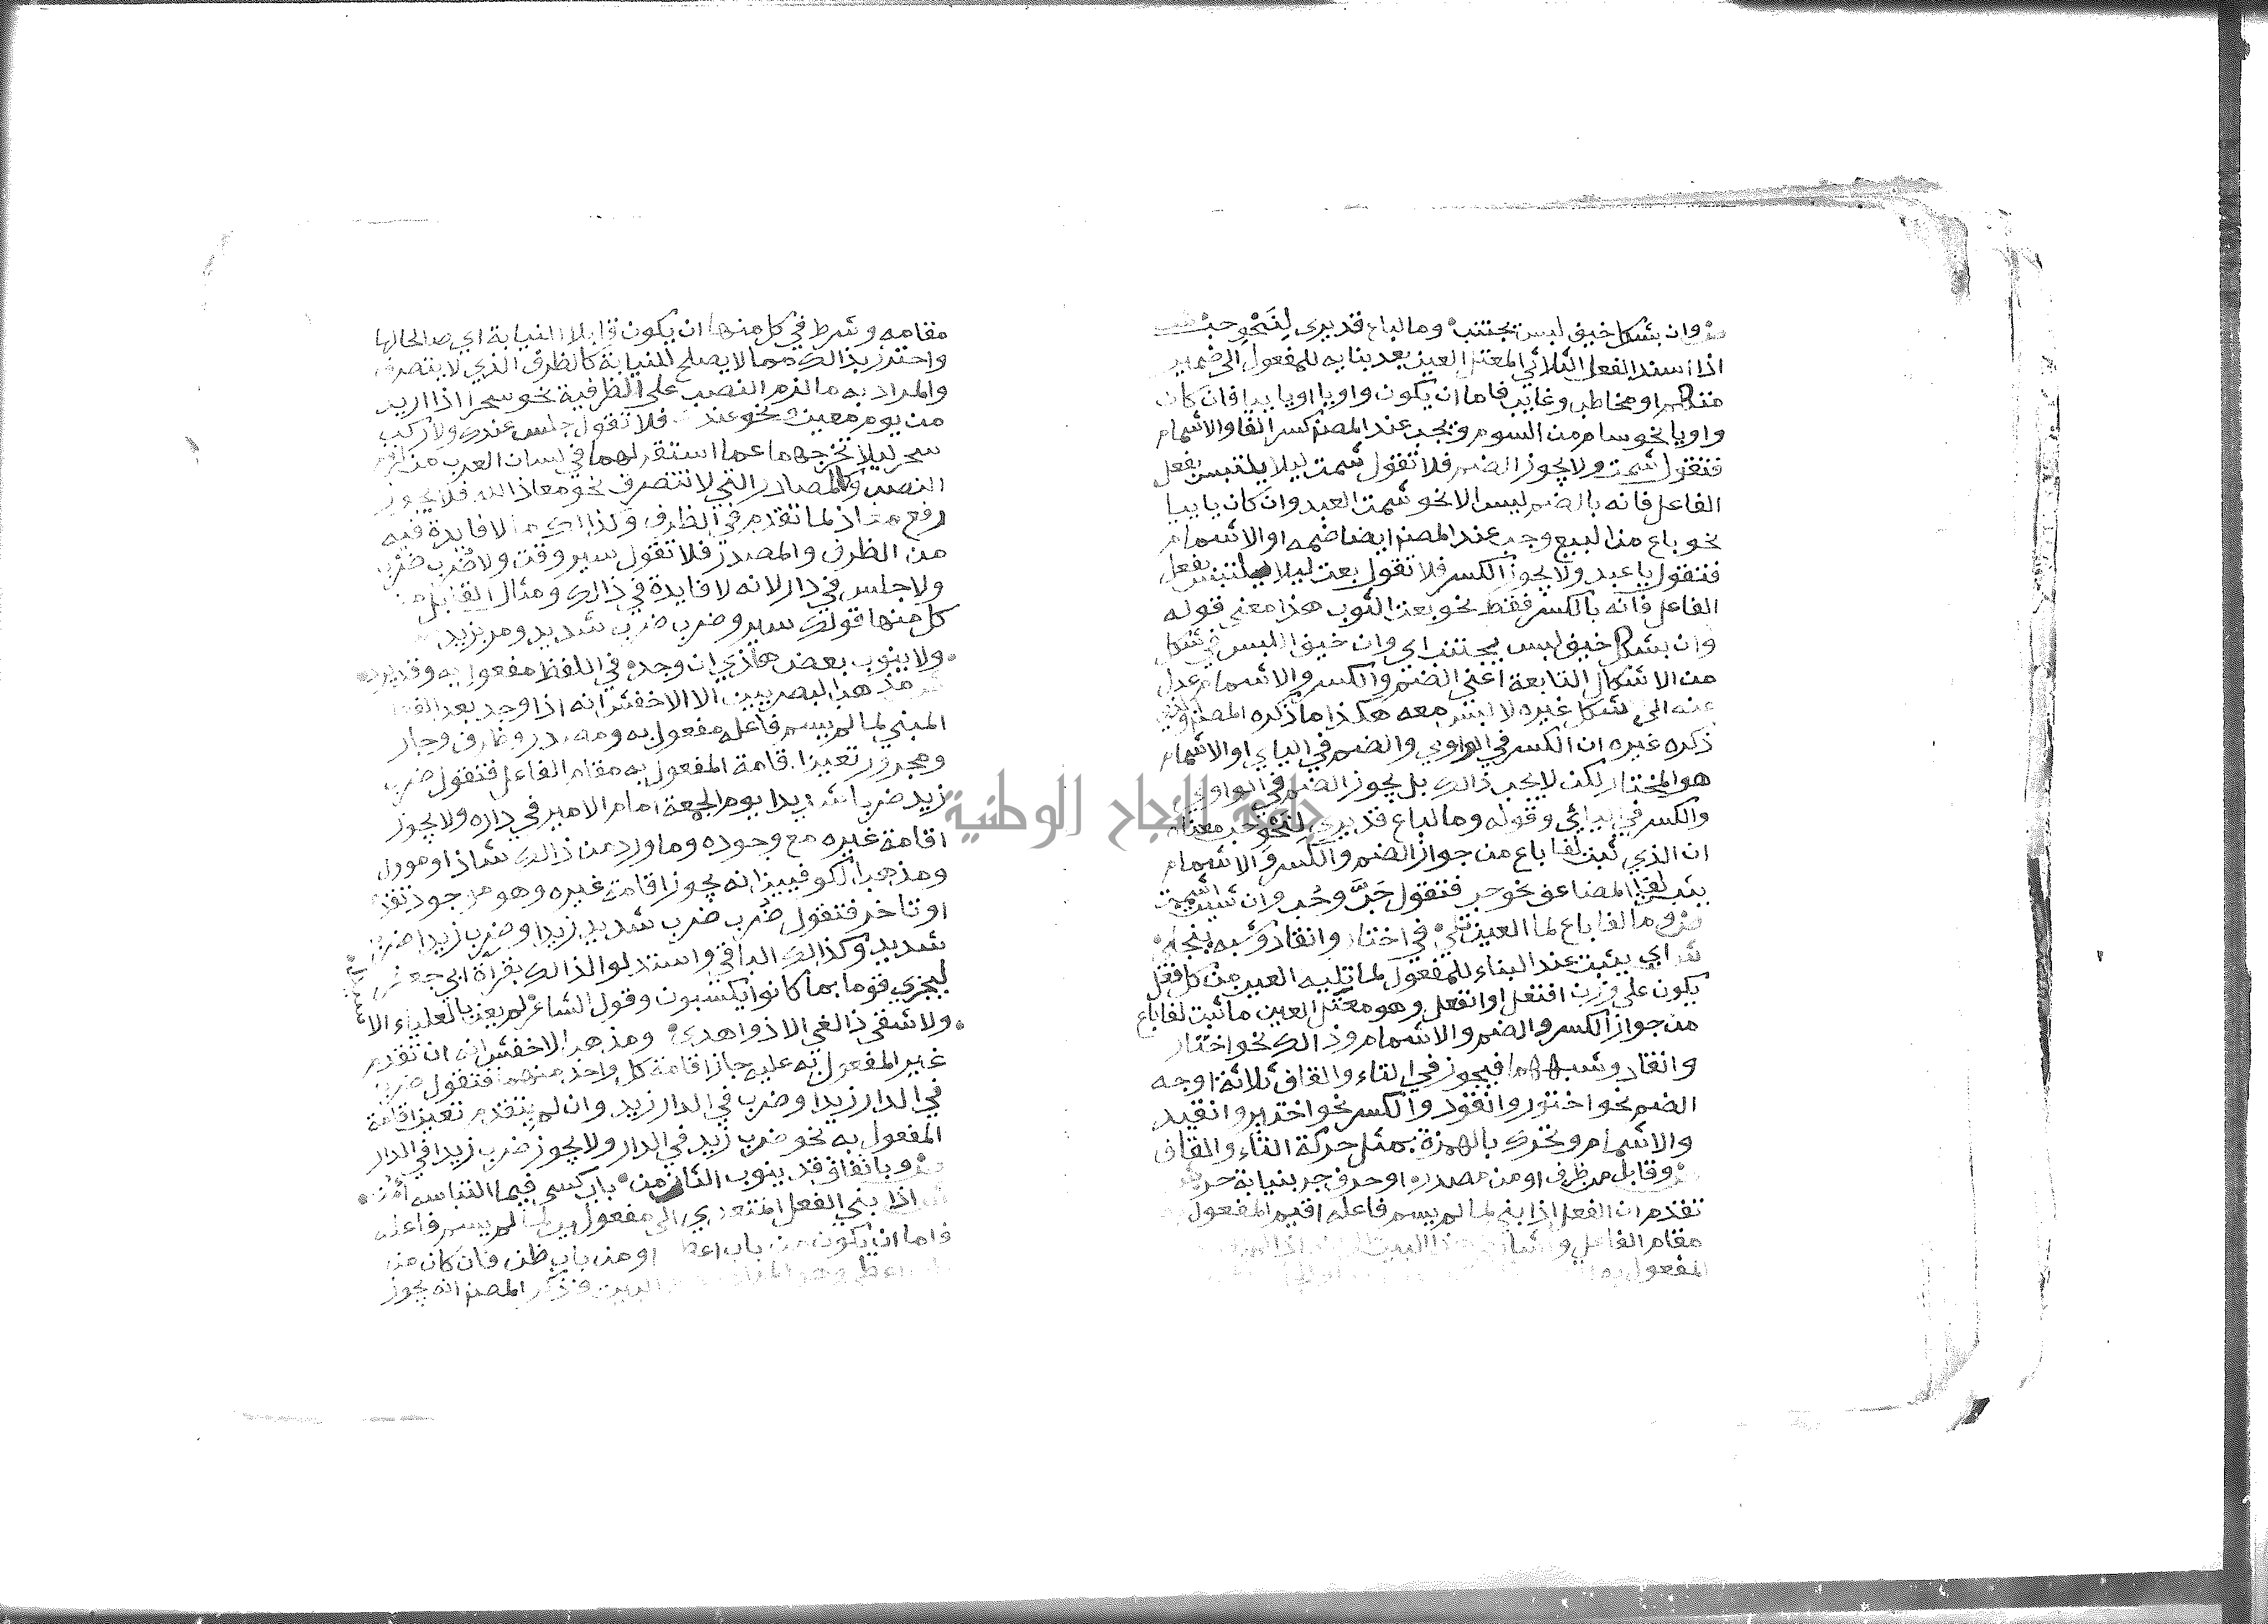 وان بشكل خيف لبس يجتنب وما لباع قد يرى لِنَحْوِ حب
اذا اسند الفعل الثلاثي المعتل العين بعد بنايه للمفعول الى ضمير
متكلم او مخاطب وغايب فاما ان يكون واويا او يا ييا فان كان
واويا نحو سام من السوم وجب عند المصنم كسر الفا والاشمام
فتقول سمت ولا يجوز الضم فلا تقول سمت ليلا يلتبس بفعل
الفاعل فانه بالضم ليس الا نحو سمت العبد وان كان يا ييا
نحو باع من البيع وجب عند المصنم ايضا ضمه او الاشمام
فتقول يا عبد ولا يجوز الكسر فلا تقول بعت ليلا يلتبس بفعل
الفاعل فانه بالكسر فقط نحو بعت الثوب هذا معني قوله
وان بشكل خيف لبس يجتنب اي وان خيف اللبس في شكل
من الاشكال التابعة اعني الضم والكسر والاشمام عدل
عنه الي شكل غيره لا لبس معه هكذا ما ذكره المصنم والذي
ذكره غيره ان الكسر في الواوي والضم في الياي او الاشمام
هو المختار لكن لا يجب ذالك بل يجوز الضم في الواوي
والكسر في اليايي وقوله وما لباع قد يرى لنحو حب معناه
ان الذي ثبت لفا باع من جواز الضم والكسر والاشمام
يثبت لفا المضاعف نحو حب فتقول حَبَّ وحُب وان شيت اشممت
وما لفا باع لما العين تلي في اختار وانقاد وشبه ينجلي
اي يثبت عند البناء للمفعول لما تليه العين من كل فعل
يكون علي وزن افتعل او انفعل وهو معتل العين ما ثبت لفا باع
من جواز الكسر والضم والاشمام وذالك نحو اختار
وانقاد وشبههما فيجوز في التاء والقاف ثلاثة اوجه
الضم نحو اختور وانقود والكسر نحو اختير وانقيد
والاشمام وتحرك بالهمزة بمثل حركة التاء والقاف
وقابل من ظرف او من مصدره او حرف جر بنيابة حر
تقدم ان الفعل اذا بني لما لم يسم فاعله اقيم المفعول
مقام الفاعل واشار في هذا البيت
المفعول به
مقامه وشرط في كل منها ان يكون قابلا للنيابة اي صالحا لها
واحترز بذالك مما لا يصلح للنيابة كالظرف الذي لا يتصرف
والمراد به ما لزم النصب علي الظرفية نحو سحر اذا اريد
من يوم معين ونحو عندك فلا تقول جلس عندك ولا ركب
سحر ليلا تخرجهما عما استقر لهما في لسان العرب من لزوم
النصب وكالمصادر التي لا تتصرف نحو معاذ الله فلا يجوز
رفع معاذ لما تقدم في الظرف وكذالك ما لا فايدة فيه
من الظرف والمصدر فلا تقول سير وقت ولا ضُرب ضرب
ولا جلس في دار لانه لا فايدة في ذالك ومثال القابل من
كل منها قولك سير وضرب ضرب شديد ومر بزيد
ولا ينوب بعض هاذي ان وجد في اللفظ مفعول به وقد يرد
مذهب البصريين الا الاخفش انه اذا وجد بعد الفعل
المبني لما لم يسم فاعله مفعول به ومصدر وظرف وجار
ومجرور تعين اقامة المفعول به مقام الفاعل فتقول ضرب
زيد ضربا شديدا يوم الجمعة امام الامير في داره ولا يجوز
اقامة غيره مع وجوده وما ورد من ذالك شاذ او موول
ومذهب الكوفيين انه يجوز اقامة غيره وهو موجود تقدم
او تاخر فتقول ضُرب ضرب شديد زيدا وضرب زيدا ضرب
شديد وكذالك الباقي واستدلوا لذالك بقراة ابي جعفر
ليجزي قوما بما كانوا يكسبون وقول الشاعر لم يعن بالعلياء الا سيدا
ولا شفى ذا الغي الا ذو اهدى ومذهب الاخفش انه ان تقدم
غير المفعول به عليه جاز اقامة كل واحد منهما فتقول ضرب
في الدار زيدا وضرب في الدار زيد وان لم يتقدم تعين اقامة
المفعول به نحو ضرب زيد في الدار ولا يجوز ضرب زيدا في الدار
وباتفاق قد ينوب الثان من باب كسى فيما التباسه امن
اذا بني الفعل المتعدي الي مفعولين لما لم يسم فاعله
فاما ان يكون من باب اعطي او من باب ظن فان كان من
باب اعطي وهو المراد البيت فذكر المصنم انه يجوز
جامعة النجاح الوطنية